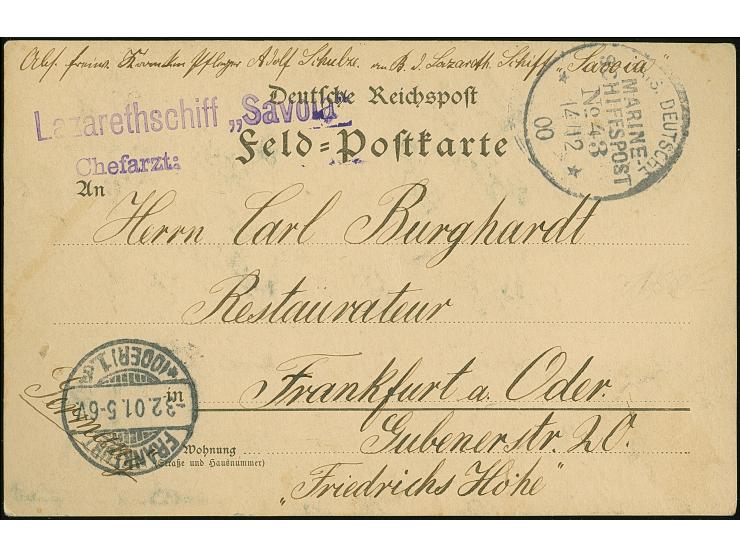 Abs. freiw. Krankenpfleger Adolf Schulze. an B. d. Lazareth. Schiff „Savoia"
Deutsche Reichspost
Lazarethschiff „Savoia"
Feld-Postkarte
Chefarzt:
KAIS. DEUTSCHE
MARINE-
SCHIFFSPOST
No 43
14/12
00
An
Herrn Carl Burghardt
Restaurateur
in Frankfurt a. Oder.
Germany
FRANKFURT
3.2.01.5-6N
(ODER) 1.
Wohnung
(Straße und Hausnummer)
Gubenerstr. 20.
„Friedrichs Höhe"